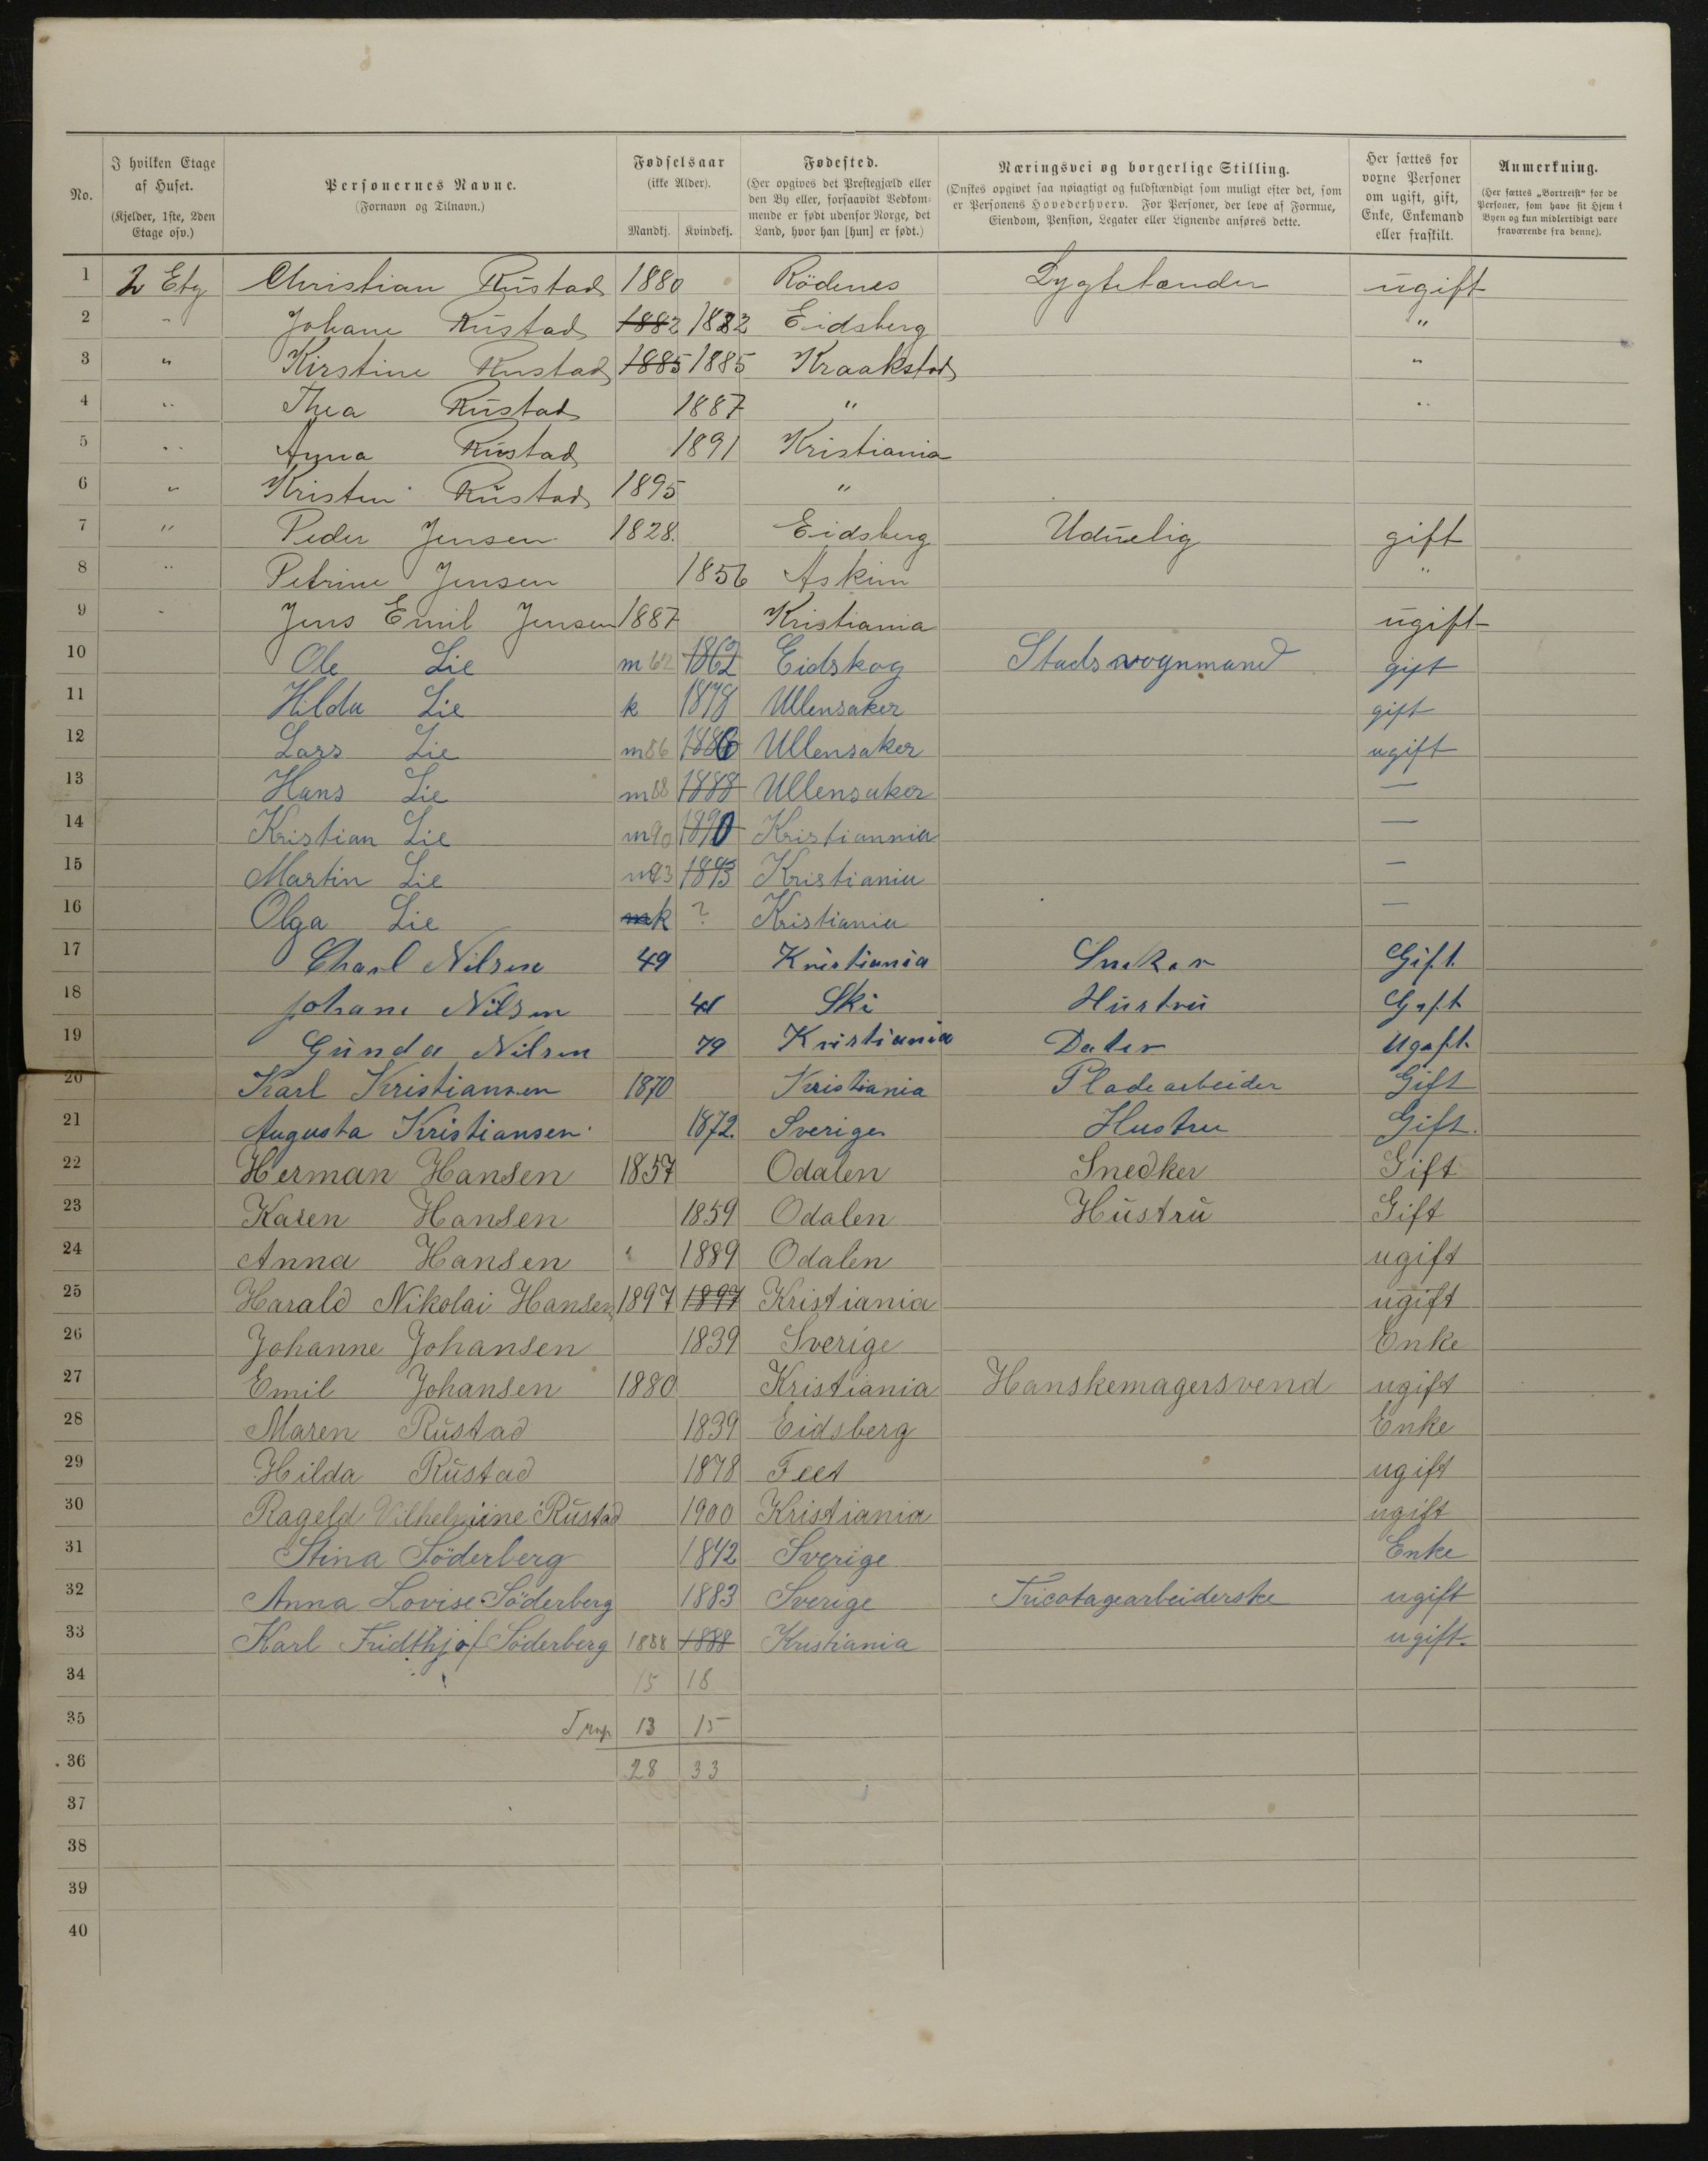 No. I hvilken Etage af Huset. (Kjelder, 1ste, 2den Etage osv.) Personernes Navne. (Fornavn og Tilnavn.) Fødselsaar (ikke Alder). Mandkj. Kvindekj. Fødested. (Her opgives det Prestegjæld eller den By eller, forsaavidt Vedkommende er født udenfor Norge, det Land, hvor han [hun] er født.) Næringsvei og borgerlige Stilling. (Ønskes opgivet saa nøiagtigt og fuldstændigt som muligt efter det, som er Personens Hovederhverv. For Personer, der leve af Formue, Eiendom, Pension, Legater eller Lignende anføres dette. Her sættes for voxne Personer om ugift, gift, Enke, Enkemand eller fraskilt. Anmerkning. (Her sættes „Bortreist" for de Personer, som have sit Hjem i Byen og kun midlertidigt vare fraværende fra denne).
1 2 Etg Christian Rustad 1880 Rödenes Lygtetænder ugift
2 " Johane Rustad 1882 1882 Eidsberg "
3 " Kirstine Rustad 1885 1885 Kraakstad "
4 " Thea Rustad 1887 " "
5 " Anna Rustad 1891 Kristiania
6 " Kristen Rustad 1895 "
7 " Peder Jensen 1828. Eidsberg Uduelig gift
8 " Petrine Jensen 1856 Askim "
9 " Jens Emil Jensen 1887 Kristiania ugift
10 Ole Lie m 62 1862 Eidskog Stadsvognmand gift
11 Hilda Lie k 1878 Ullensaker gift
12 Lars Lie m 86 1886 Ullensaker ugift
13 Hans Lie m 88 1888 Ullensaker —
14 Kristian Lie m 90 1890 Kristiannia —
15 Martin Lie m 93 1893 Kristiania —
16 Olga Lie m k ? Kristiania —
17 Charl Nilsen 49 Kristiania Sneker Gift
18 Johane Nilsen 41 Ski Hustru Gift
19 Gunda Nilsen 79 Kristiania Dater Ugift.
20 Karl Kristiansen 1870 Kristiania Pladearbeider Gift
21 Augusta Kristiansen 1872. Sverige Hustru Gift.
22 Herman Hansen 1857 Odalen Snedker Gift
23 Karen Hansen 1859 Odalen Hustru Gift
24 Anna Hansen 1889 Odalen ugift
25 Harald Nikolai Hansen 1897 1897 Kristiania ugift
26 Johanne Johansen 1839 Sverige Enke
27 Emil Johansen 1880 Kristiania Hanskemagersvend ugift
28 Maren Rustad 1839 Eidsberg Enke
29 Hilda Rustad 1878 Feet ugift
30 Rageld Vilhelmine Rustad 1900 Kristiania ugift
31 Stina Söderberg 1842 Sverige Enke
32 Anna Lovise Söderberg 1883 Sverige Tricotagearbeiderske ugift
33 Karl Fridthjof Söderberg 1888 1888 Kristiania ugift.
34 15 18
35 13 15
36 28 33
37
38
39
40